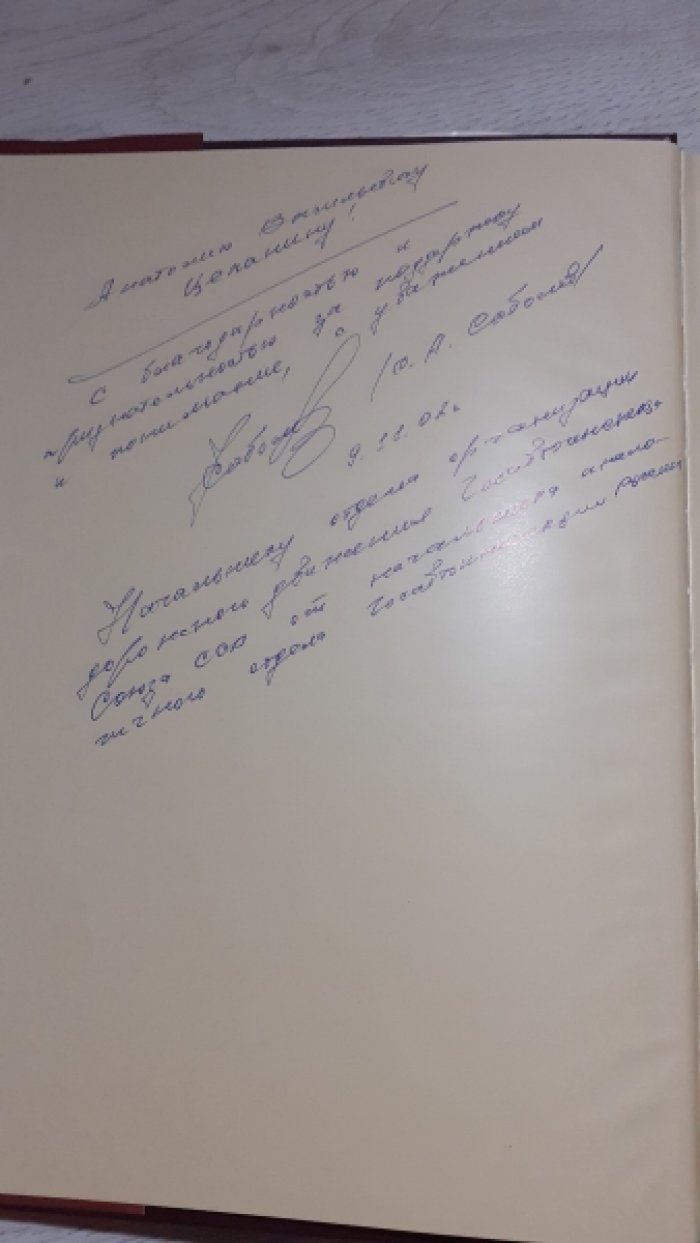 Анатолию Васильевичу
Цепанину!
С благодарностью и
признательностью за поддержку
и понимание, с уважением
Соболев /Ю. А. Соболев/
9.11.02г.
Начальнику отдела организации
дорожного движения Госавтоинспекции
Союза ССР от начальника анало-
гичного отдела Госавтоинспекции России